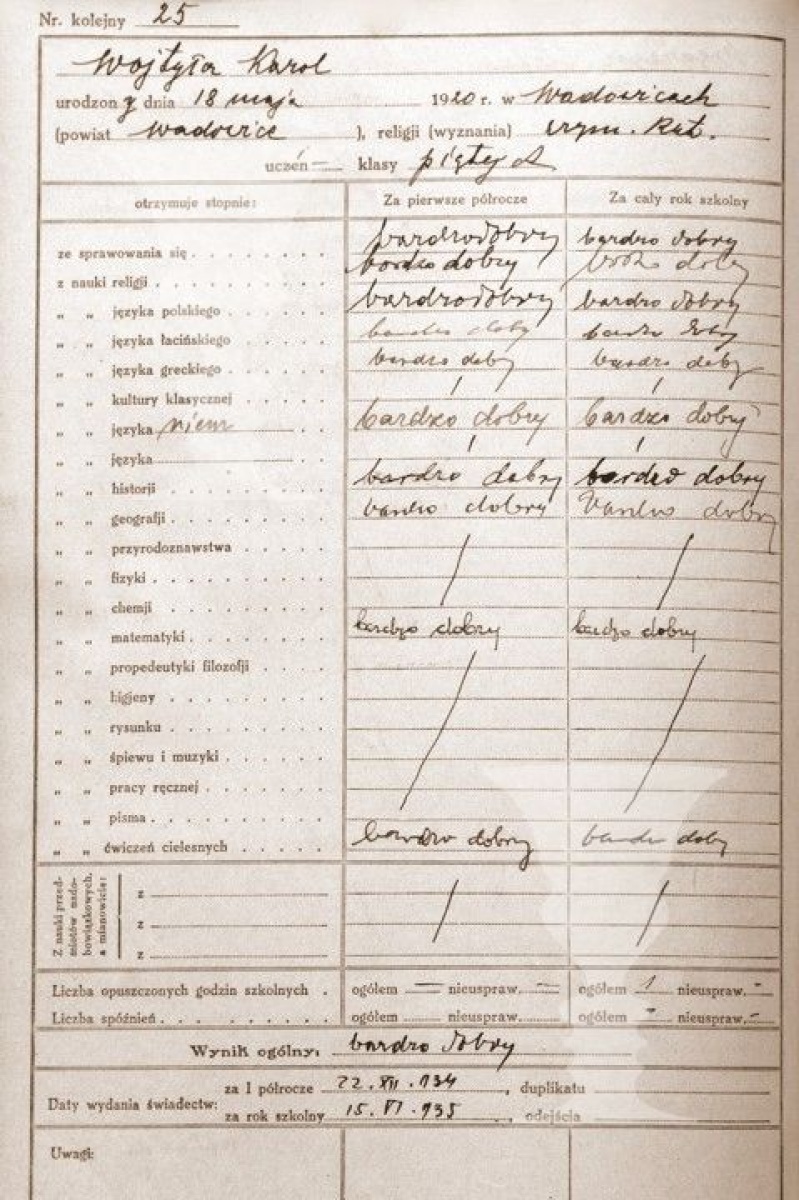 Nr. kolejny 25
Wojtyła Karol
urodzony dnia 18 maja 1920 r. w Wadowicach
(powiat Wadowice ), religji (wyznania) rzym. kat.
uczeń — klasy piątej A
otrzymuje stopnie: Za pierwsze półrocze Za cały rok szkolny
ze sprawowania się bardzo dobry bardzo dobry
z nauki religji bardzo dobry bardzo dobry
„ „ języka polskiego bardzo dobry bardzo dobry
„ „ języka łacińskiego bardzo dobry bardzo dobry
„ „ języka greckiego bardzo dobry bardzo dobry
„ „ kultury klasycznej / /
„ „ języka niem bardzo dobry bardzo dobry
„ „ języka / /
„ „ historji bardzo dobry bardzo dobry
„ „ geografji bardzo dobry bardzo dobry
„ „ przyrodoznawstwa
„ „ fizyki
„ „ chemji
„ „ matematyki bardzo dobry bardzo dobry
„ „ propedeutyki filozofji
„ „ higjeny
„ „ rysunku
„ „ śpiewu i muzyki
„ „ pracy ręcznej
„ „ pisma
„ „ ćwiczeń cielesnych bardzo dobry bardzo dobry
Z nauki przed-
miotów nado-
bowiązkowych,
a mianowicie:
z
z
z
Liczba opuszczonych godzin szkolnych . ogółem — nieuspraw. — ogółem 1 nieuspraw. -
Liczba spóźnień ogółem nieuspraw. ogółem - nieuspraw. -
Wynik ogólny: bardzo dobry
Daty wydania świadectw:
za I półrocze 22. XII. 934 , duplikatu
za rok szkolny 15. VI. 935 , odejścia
Uwagi: